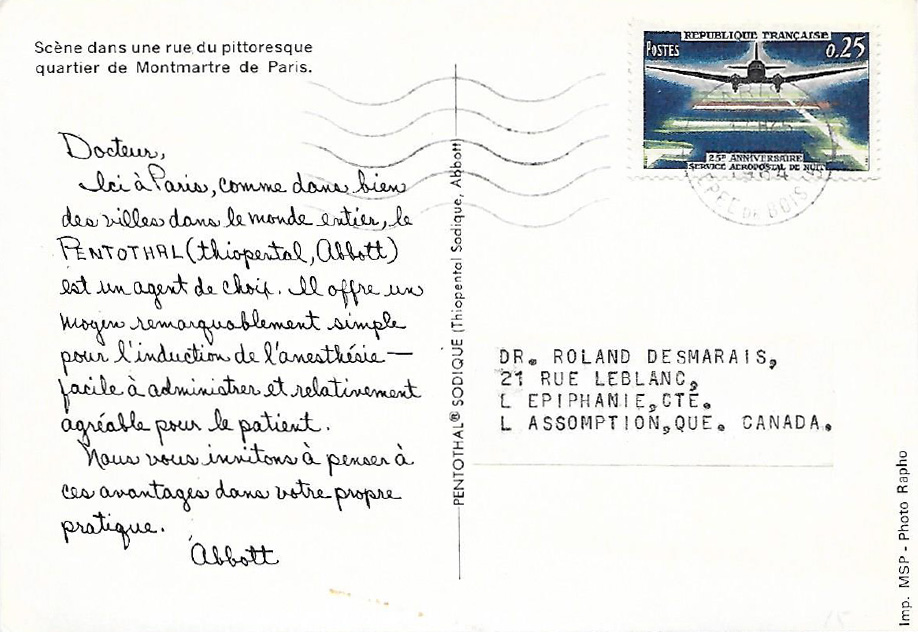 Scène dans une rue du pittoresque
quartier de Montmartre de Paris.
Docteur,
Ici à Paris, comme dans bien
des villes dans le monde entier, le
PENTOTHAL (thiopental, Abbott)
est un agent de choix. Il offre un
moyen remarquablement simple
pour l'induction de l'anesthésie —
facile à administrer et relativement
agréable pour le patient.
Nous vous invitons à penser à
ces avantages dans votre propre
pratique.
Abbott
PENTOTHAL® SODIQUE (Thiopental Sodique, Abbott)
REPUBLIQUE FRANÇAISE
POSTES 0.25
25E ANNIVERSAIRE
SERVICE AEROPOSTAL DE NUIT
DR. ROLAND DESMARAIS,
21 RUE LEBLANC,
L EPIPHANIE,CTE.
L ASSOMPTION,QUE. CANADA.
Imp. MSP - Photo Rapho